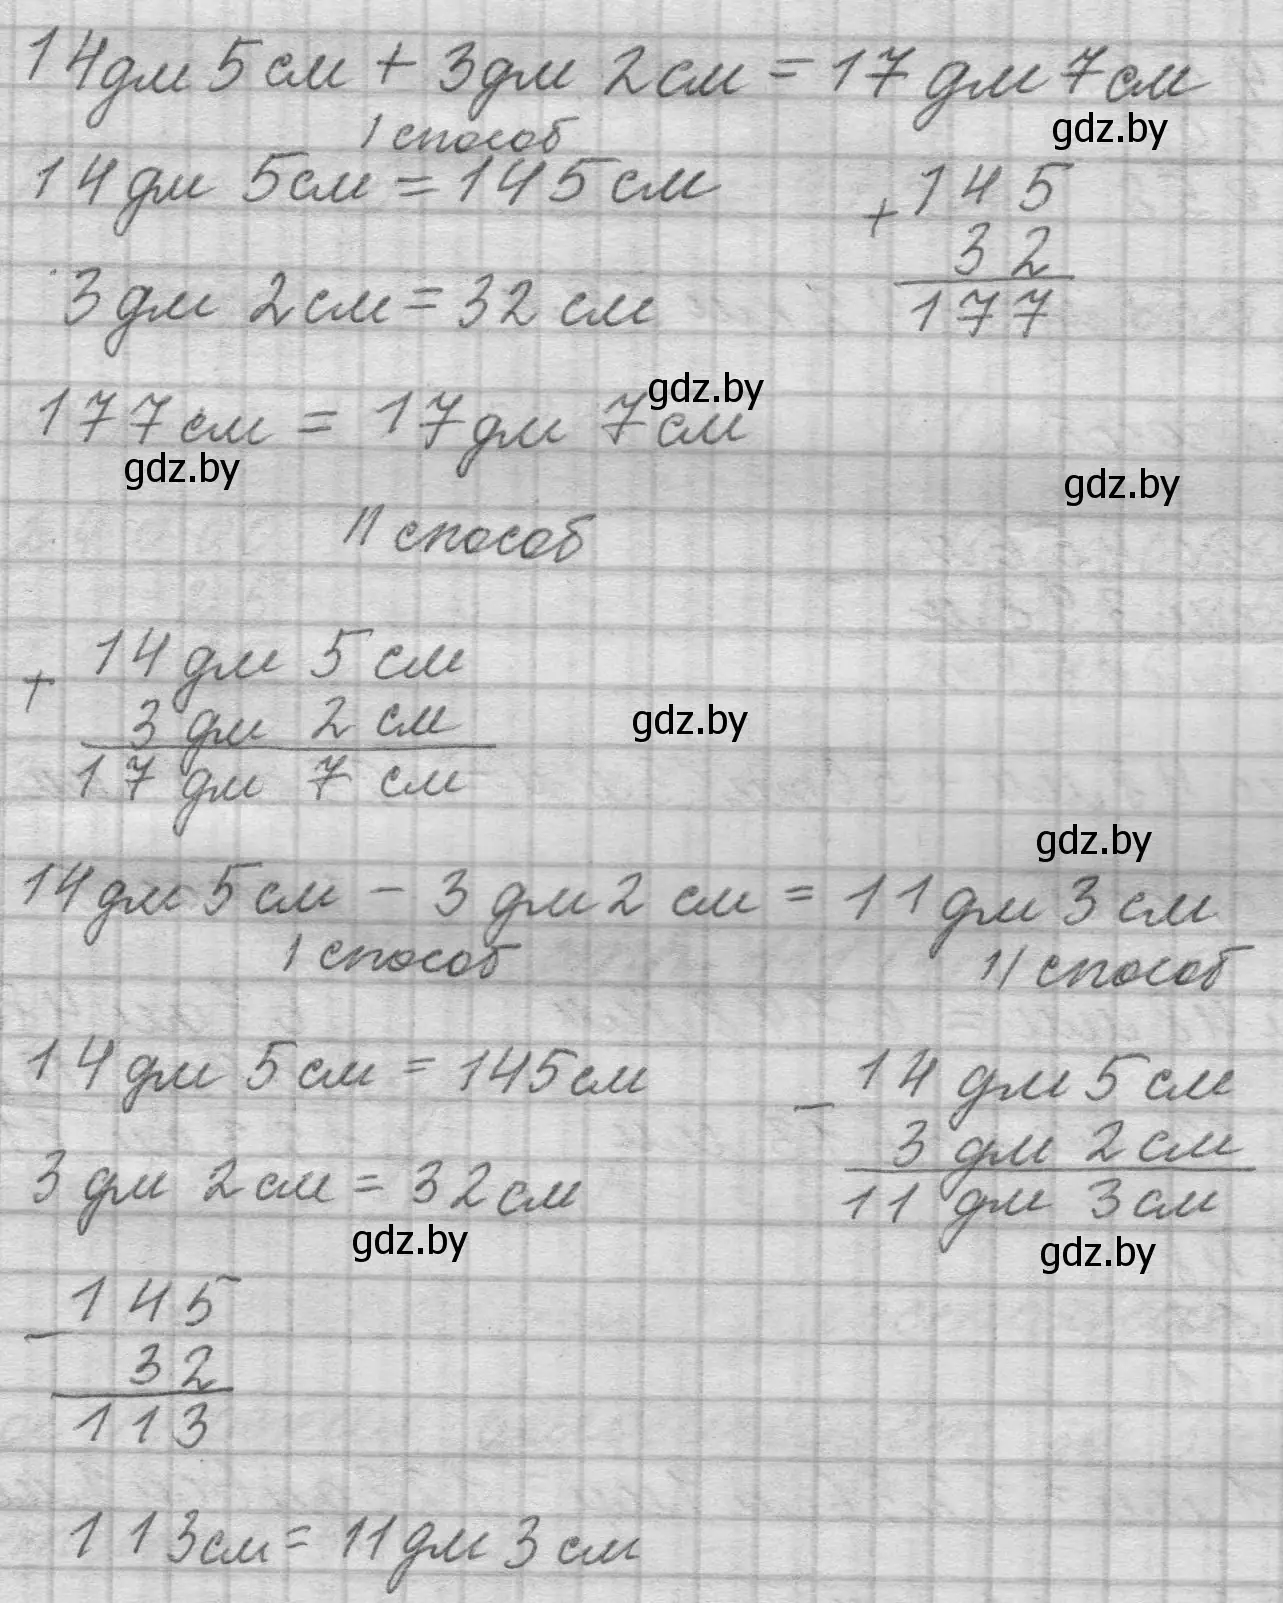 14дм 5см + 3дм 2см = 17дм 7см
gdz.by
1 способ
14дм 5см = 145см
+ 145
32
177
3дм 2см = 32см
gdz.by
177см = 17дм 7см
gdz.by
gdz.by
11 способ
+ 14дм 5см
3дм 2см
17дм 7см
gdz.by
gdz.by
14дм 5см - 3дм 2см = 11дм 3см
1 способ
11 способ
14дм 5см = 145см
- 14дм 5см
3дм 2см
11дм 3см
gdz.by
3дм 2см = 32см
gdz.by
- 145
32
113
113см = 11дм 3см